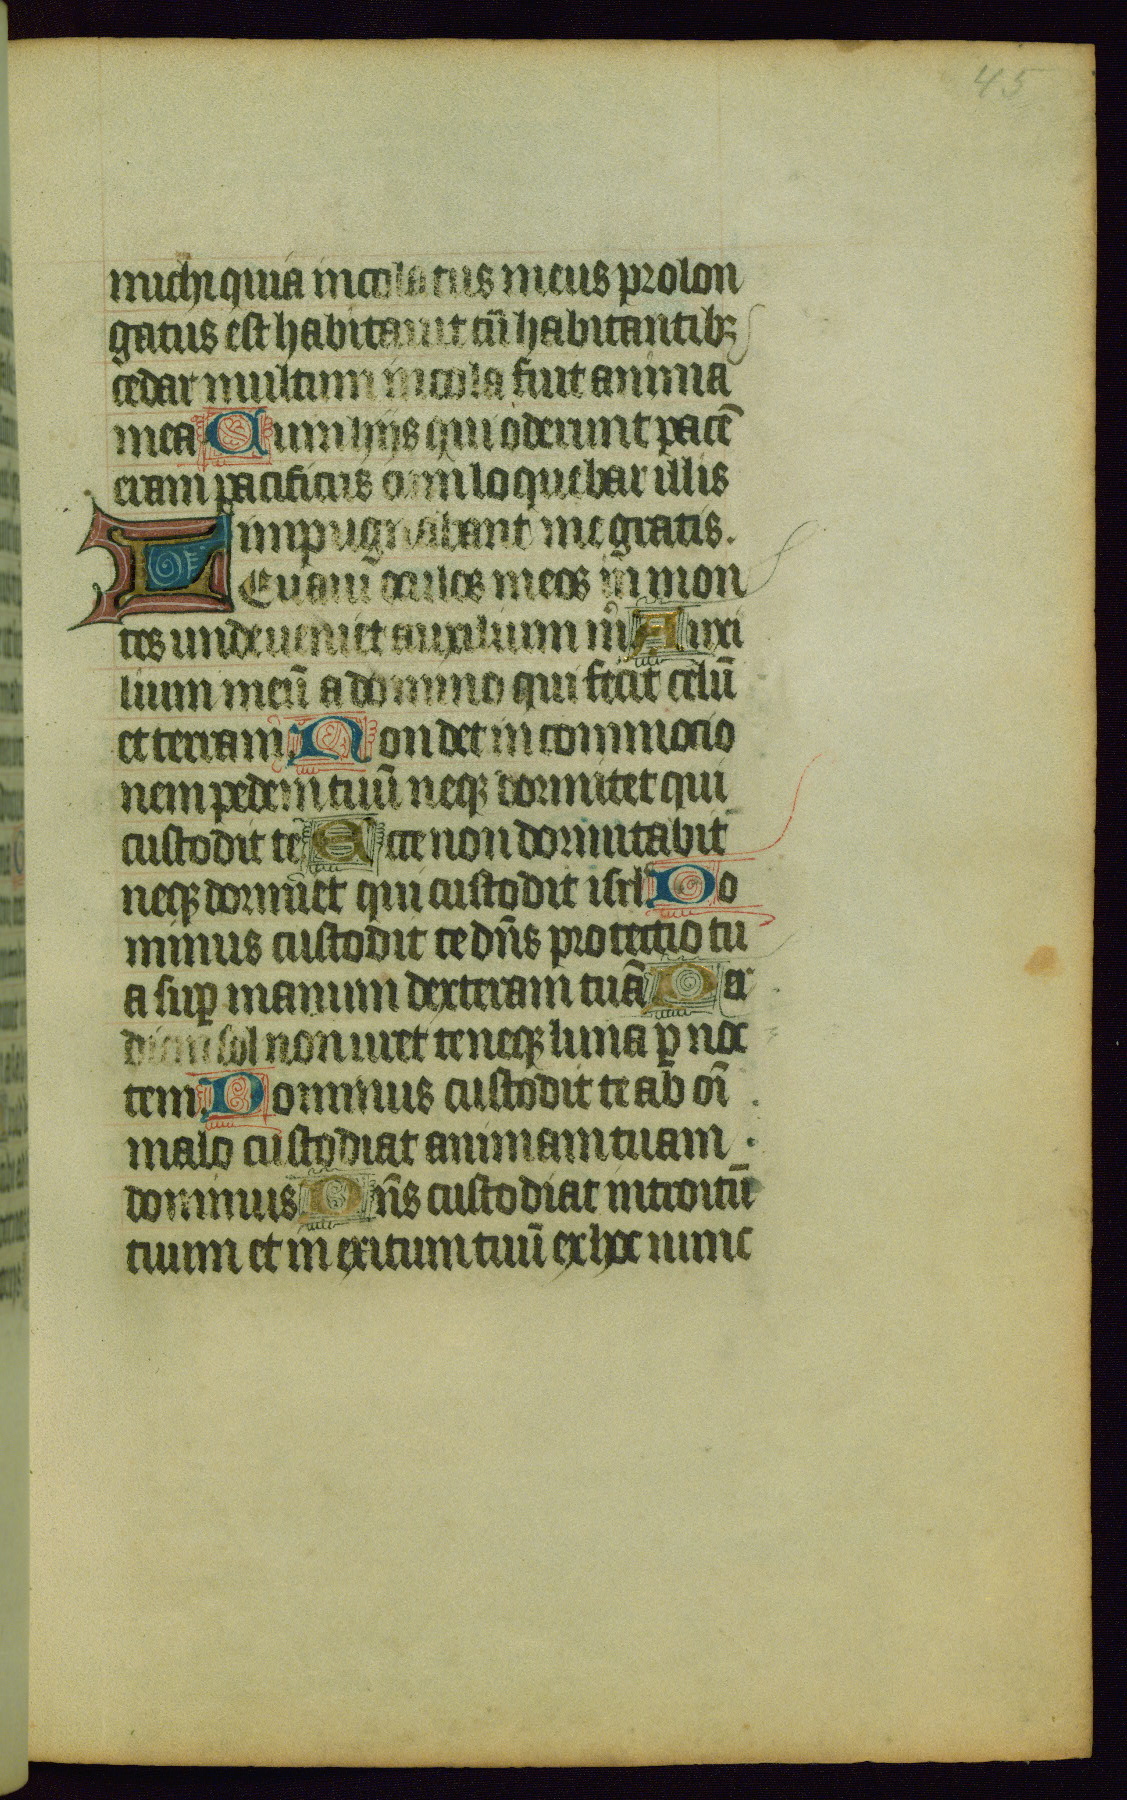 45
michi quia incolatus meus prolon
gatus est habitaui cū habitantibꝫ
cedar multum incola fuit anima
mea Cum hijs qui oderunt pacē
eram pacificus cum loquebar illis
impugnabant me gratis.
Leuaui oculos meos in mon
tes unde ueniet auxilium m̄ Auxi
lium meū a domino qui fecit celū
et terram. Non det in commocio
nem pedem tuū neqꝫ dormitet qui
custodit te Ecce non dormitabit
neqꝫ dormiet qui custodit isrl. Do
minus custodit te dn̄s protectio tu
a suꝑ manum dexteram tuā Per
diem sol non uret te neqꝫ luna ꝑ noc
tem. Dominus custodit te ab oī
malo custodiat animam tuam
dominus Dn̄s custodiat introitū
tuum et in exitum tuū ex hoc nunc